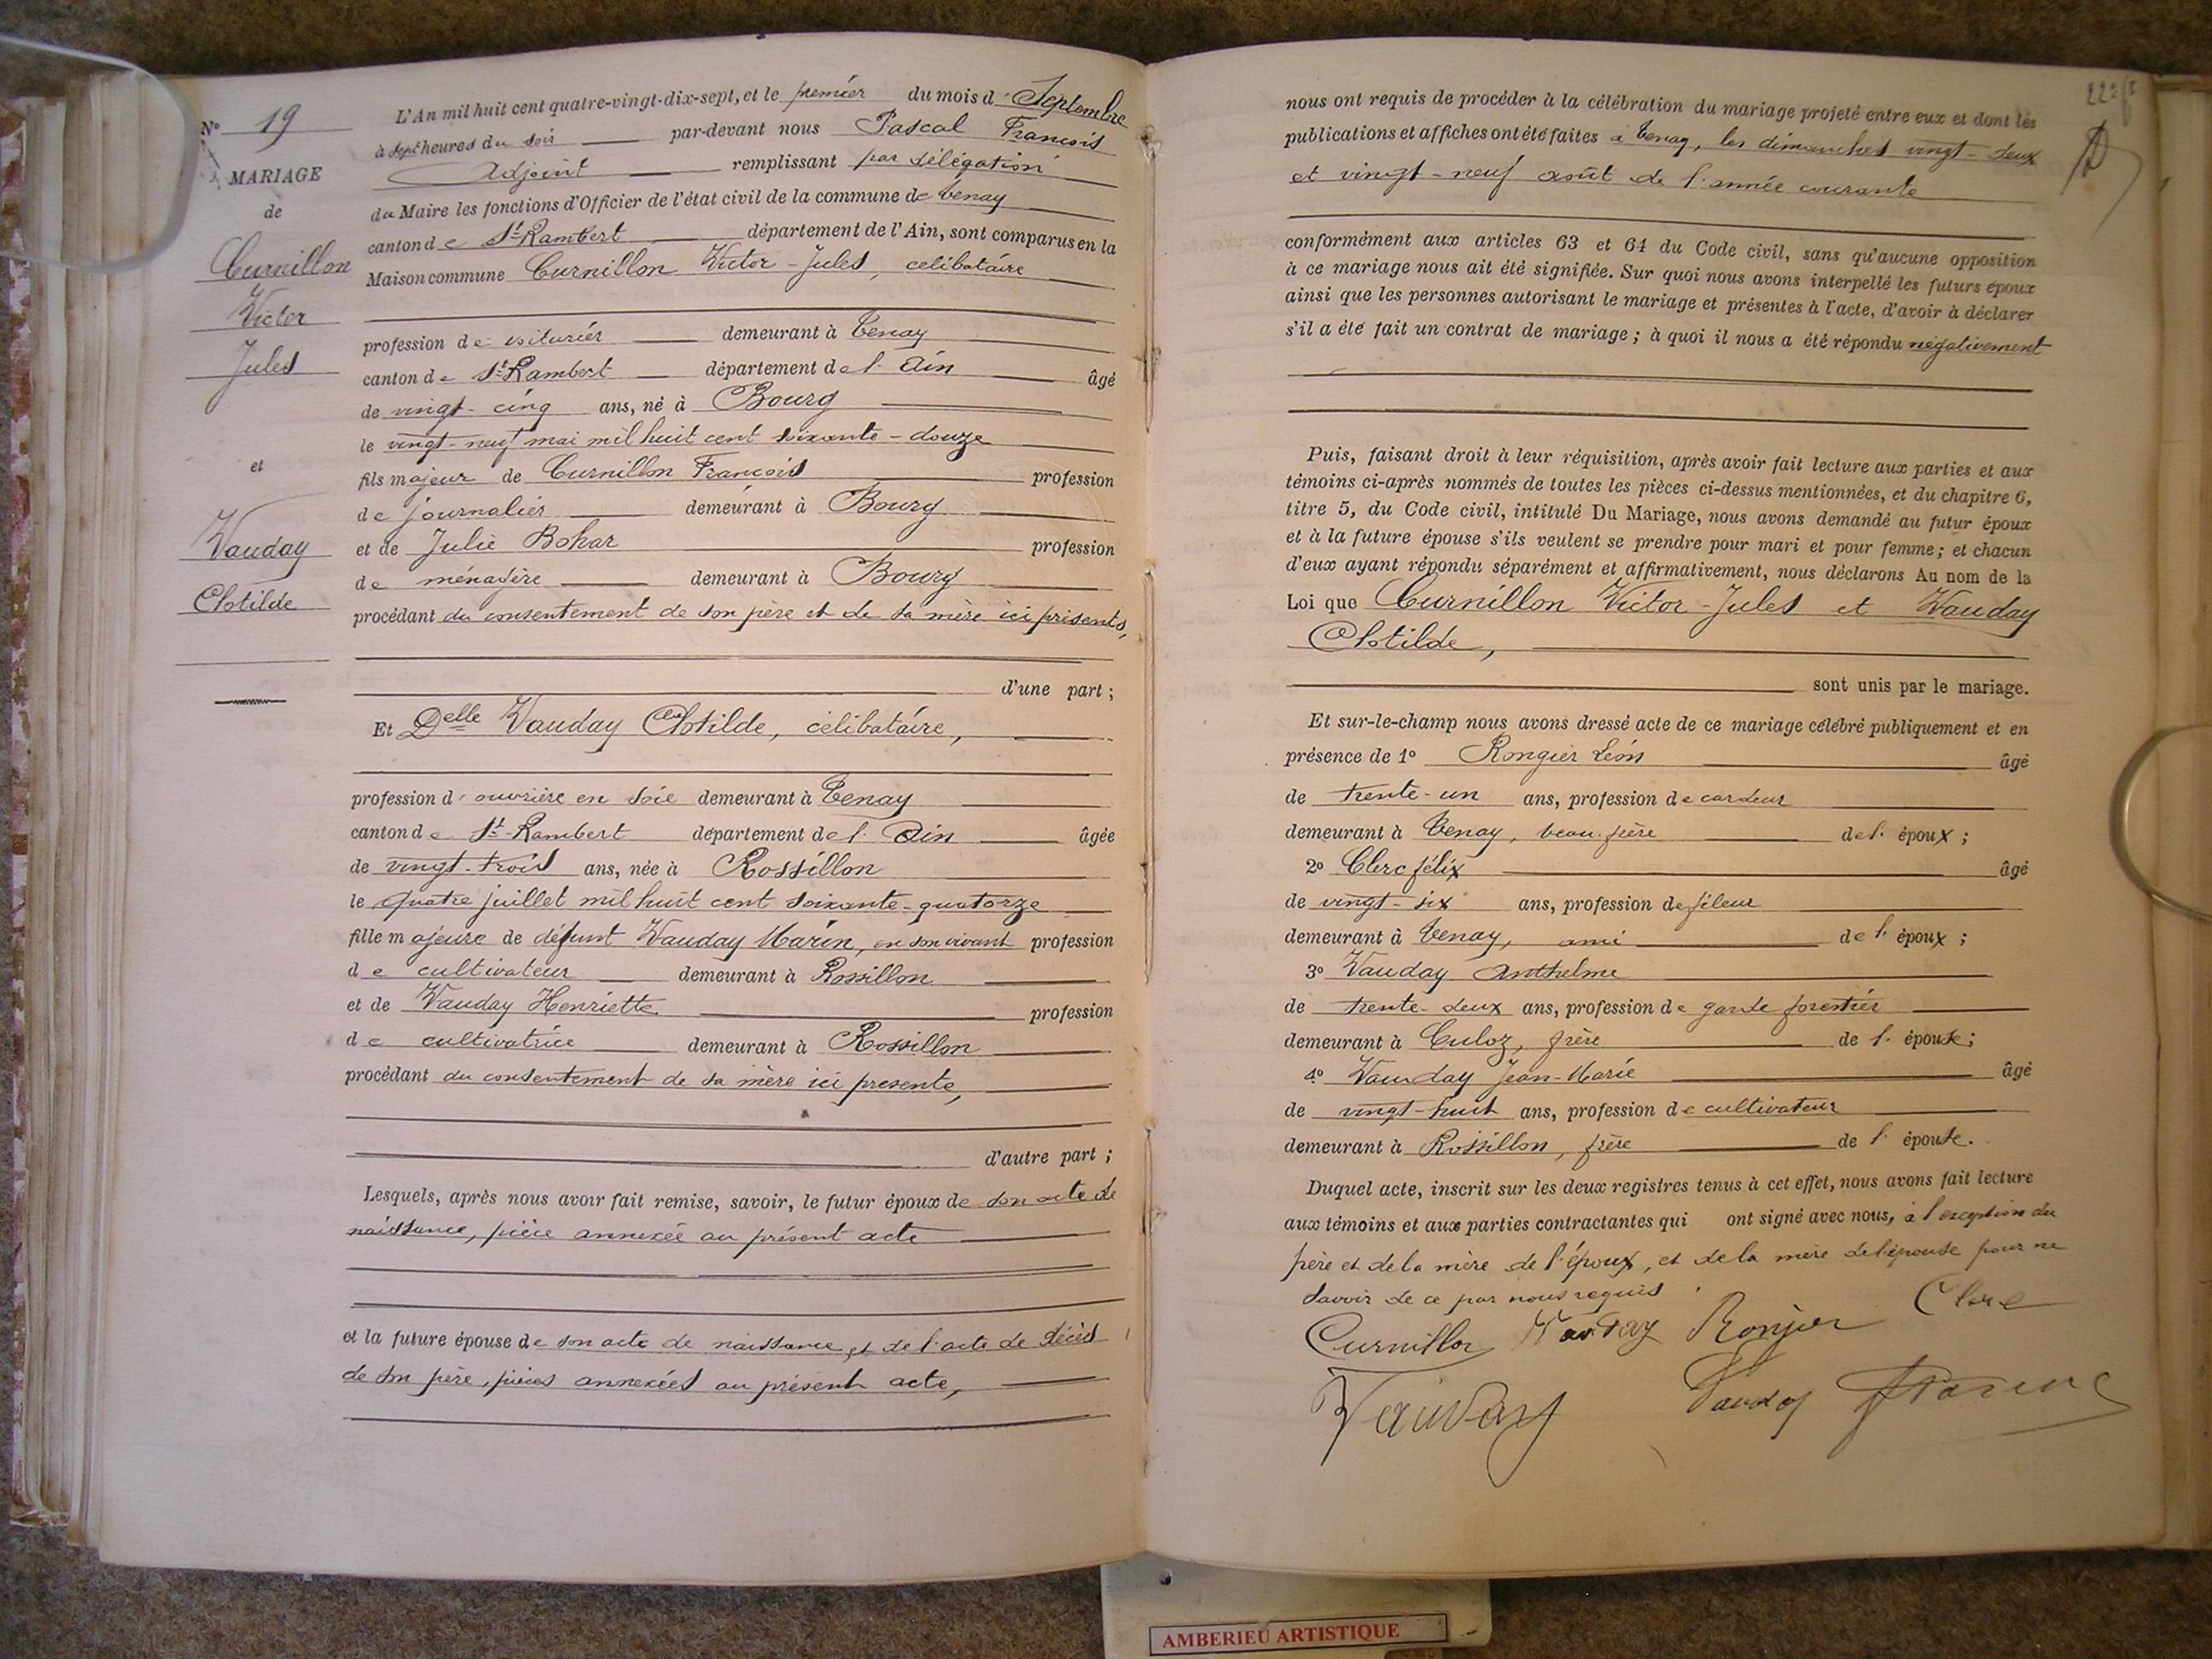 N° 19
MARIAGE
de
Curnillon
Victor
Jules
et
Vauday
Clotilde
L'An mil huit cent quatre-vingt-dix-sept, et le premier du mois d Septembre
à sept heures du soir par-devant nous Pascal François
Adjoint remplissant par délégation
du Maire les fonctions d'Officier de l'état civil de la commune de Tenay
canton de St-Rambert département de l'Ain, sont comparus en la
Maison commune Curnillon Victor-Jules, célibataire
profession de demeurant à Tenay
canton de St-Rambert département de l'Ain âgé
de vingt-cinq ans, né à Bourg
le vingt-neuf mai mil huit cent soixante-douze
fils majeur de Curnillon François profession
de journalier demeurant à Bourg
et de Julie Bohar profession
de ménagère demeurant à Bourg
procédant du consentement de son père et de sa mère ici présents,
d'une part ;
Et Delle Vauday Clotilde, célibataire,
profession d'ouvrière en soie demeurant à Tenay
canton de St-Rambert département de l'Ain âgée
de vingt-trois ans, née à Rossillon
le quatre juillet mil huit cent soixante-quatorze
fille majeure de défunt Vauday Marin, en son vivant profession
de cultivateur demeurant à Rossillon
et de Vauday Henriette profession
de cultivatrice demeurant à Rossillon
procédant du consentement de sa mère ici presente,
d'autre part ;
Lesquels, après nous avoir fait remise, savoir, le futur époux de son acte de
naissance, pièce annexée au présent acte
et la future épouse de son acte de naissance et de l'acte de décès
de son père, pièces annexées au présent acte,
nous ont requis de procéder à la célébration du mariage projeté entre eux et dont les
publications et affiches ont été faites à Tenay, les dimanches vingt-deux
et vingt-neuf août de l'année courante
conformément aux articles 63 et 64 du Code civil, sans qu'aucune opposition
à ce mariage nous ait été signifiée. Sur quoi nous avons interpellé les futurs époux
ainsi que les personnes autorisant le mariage et présentes à l'acte, d'avoir à déclarer
s'il a été fait un contrat de mariage ; à quoi il nous a été répondu négativement
Puis, faisant droit à leur réquisition, après avoir fait lecture aux parties et aux
témoins ci-après nommés de toutes les pièces ci-dessus mentionnées, et du chapitre 6,
titre 5, du Code civil, intitulé Du Mariage, nous avons demandé au futur époux
et à la future épouse s'ils veulent se prendre pour mari et pour femme ; et chacun
d'eux ayant répondu séparément et affirmativement, nous déclarons Au nom de la
Loi que Curnillon Victor-Jules et Vauday
Clotilde,
sont unis par le mariage.
Et sur-le-champ nous avons dressé acte de ce mariage célébré publiquement et en
présence de 1° Rongier Léon âgé
de trente-un ans, profession de cardeur
demeurant à Tenay, beau-frère de l'époux ;
2° Clerc félix âgé
de vingt-six ans, profession de fileur
demeurant à Tenay, ami de l'époux ;
3° Vauday Anthelme
de trente-deux ans, profession de garde forestier
demeurant à Culoz, frère de l'épouse ;
4° Vauday Jean-Marie âgé
de vingt-huit ans, profession de cultivateur
demeurant à Rossillon, frère de l'épouse.
Duquel acte, inscrit sur les deux registres tenus à cet effet, nous avons fait lecture
aux témoins et aux parties contractantes qui ont signé avec nous, à l'exception du
père et de la mère de l'époux, et de la mère de l'épouse pour ne
savoir de ce par nous requis.
Curnillon Vauday Ronjier Clerc
Vauday Vauday
AMBERIEU ARTISTIQUE